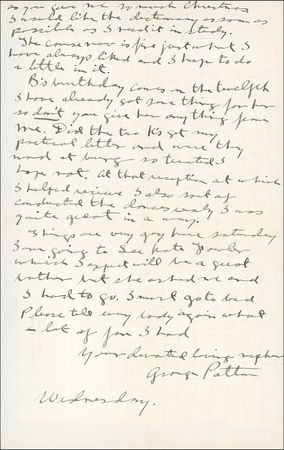 as you gave me so much Christmas
I would like the dictionary as soon as
possible as I need it in study.
The course now is fine just what I
have always liked and I hope to do
a little in it.
B's birthday comes on the twelfth
I have already got some thing for her
so don't you give her any thing from
me. Did the two Ks get my
poetical letter and were they
mad at being so treated I
hope not. At that reception at which
I helped receive I also sort of
conducted the dances realy I was
quite great in a way!
Things are very gay here saturday
I am going to see Kate Fowler
which I expect will be a great
bother but she asked me and
I had to go. I must go to bed
Please tell evry body again what
a lot of fun I had
Your devoted loving nephew
George Patton
Wednesday.